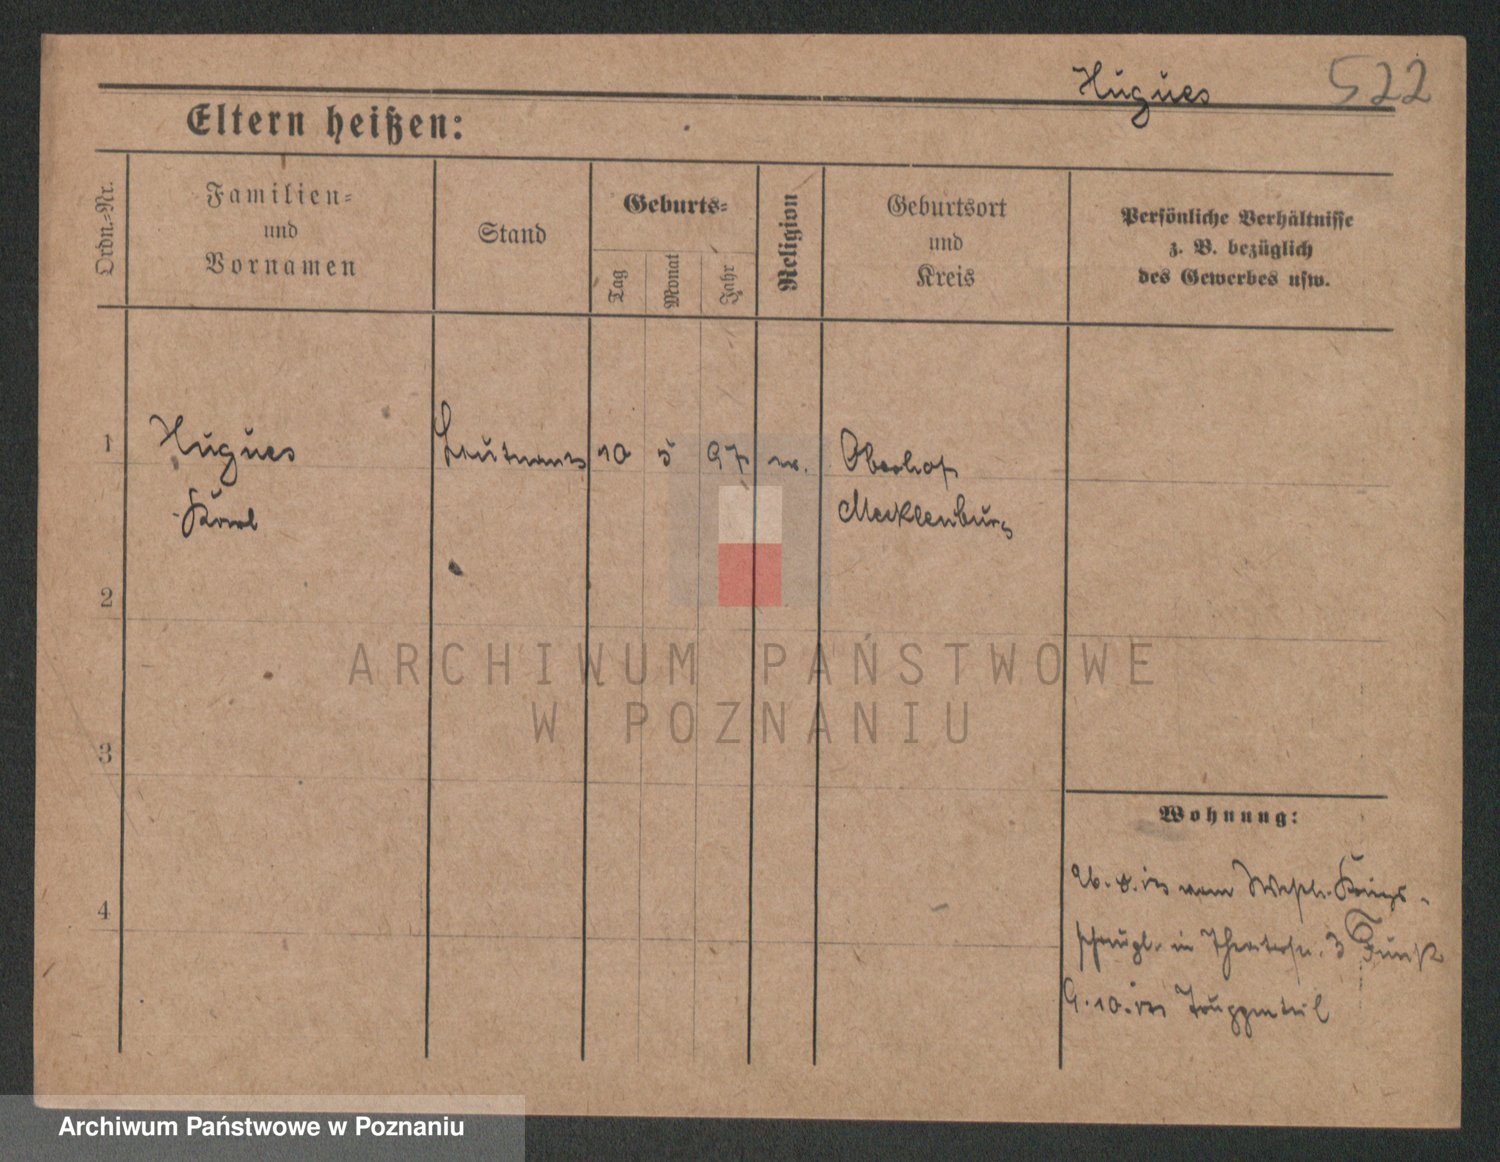 Hugues 522
Eltern heißen:
Ordn.-Nr.
Familien-
und
Vornamen
Stand
Geburts-
Tag
Monat
Jahr
Religion
Geburtsort
und
Kreis
Persönliche Verhältnisse
z. B. bezüglich
des Gewerbes usw.
1 Hugues Leutnant 10 5 97 ev. Oberhof
Karl Mecklenburg
2
3
4
Wohnung:
26. 8. vom Westl. Kriegs-
schaupl. in Theaterstr. 3 Funk
9. 10. Truppenteil
ARCHIWUM PAŃSTWOWE
W POZNANIU
Archiwum Państwowe w Poznaniu